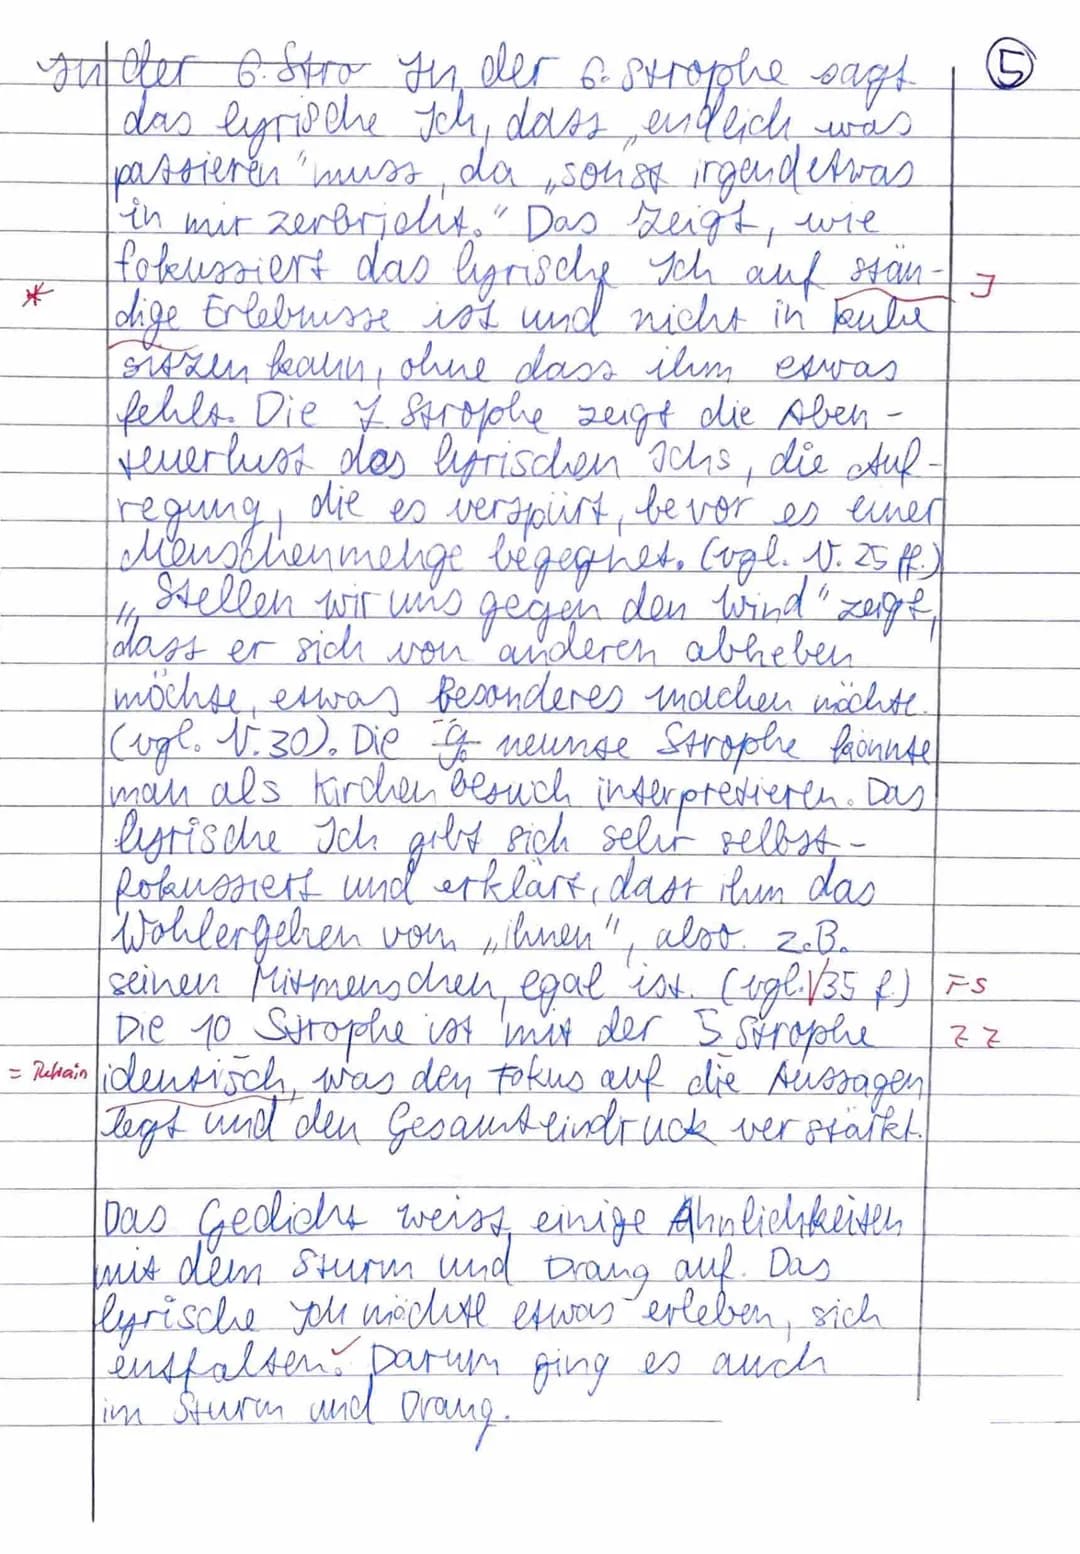 In der 6. Stro In der 6. Strophe sagt
⑤
das lyrische Ich, dass „endlich was
passieren" muss, da „sonst irgendetwas
in mir zerbricht." Das zeigt, wie
fokussiert das lyrische Ich auf stän-
*
dige Erlebnisse ist und nicht in Ruhe
sitzen kann, ohne dass ihm etwas
fehlt. Die 7 Strophe zeigt die Aben-
teuerlust des lyrischen Ichs, die Auf-
regung, die es verspürt, bevor es einer
Menschenmenge begegnet. (vgl. V. 25 ff.)
„Stellen wir uns gegen den Wind" zeigt,
dass er sich von anderen abheben
möchte, etwas Besonderes machen möchte.
(vgl. V.30). Die 9. neunte Strophe könnte
man als Kirchenbesuch interpretieren. Das
lyrische Ich gibt sich sehr selbst-
fokussiert und erklärt, dass ihm das
Wohlergehen vom „ihnen", also z.B.
seinen Mitmenschen, egal ist. (vgl. V35 f.)
FS
Die 10 Strophe ist mit der 5 Strophe
Z Z
= Refrain
identisch, was den Fokus auf die Aussagen
legt und den Gesamteindruck verstärkt.
Das Gedicht weist einige Ähnlichkeiten
mit dem Sturm und Drang auf. Das
lyrische Ich möchte etwas erleben, sich
entfalten. Darum ging es auch
im Sturm und Drang.